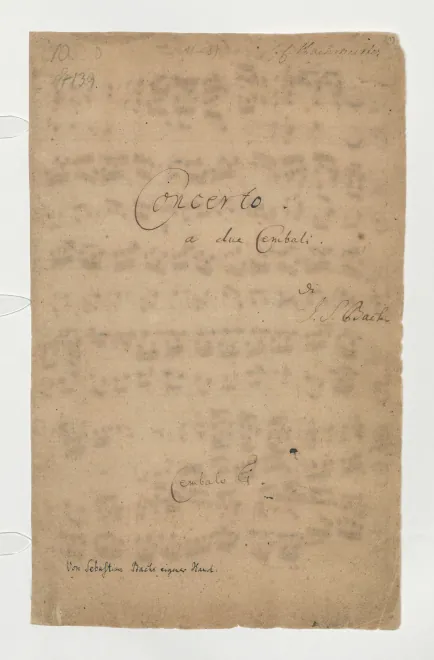 10.
139.
Concerto.
a due Cembali.
di
J. S. Bach
Cembalo
Von Sebastian Bachs eigener Hand.